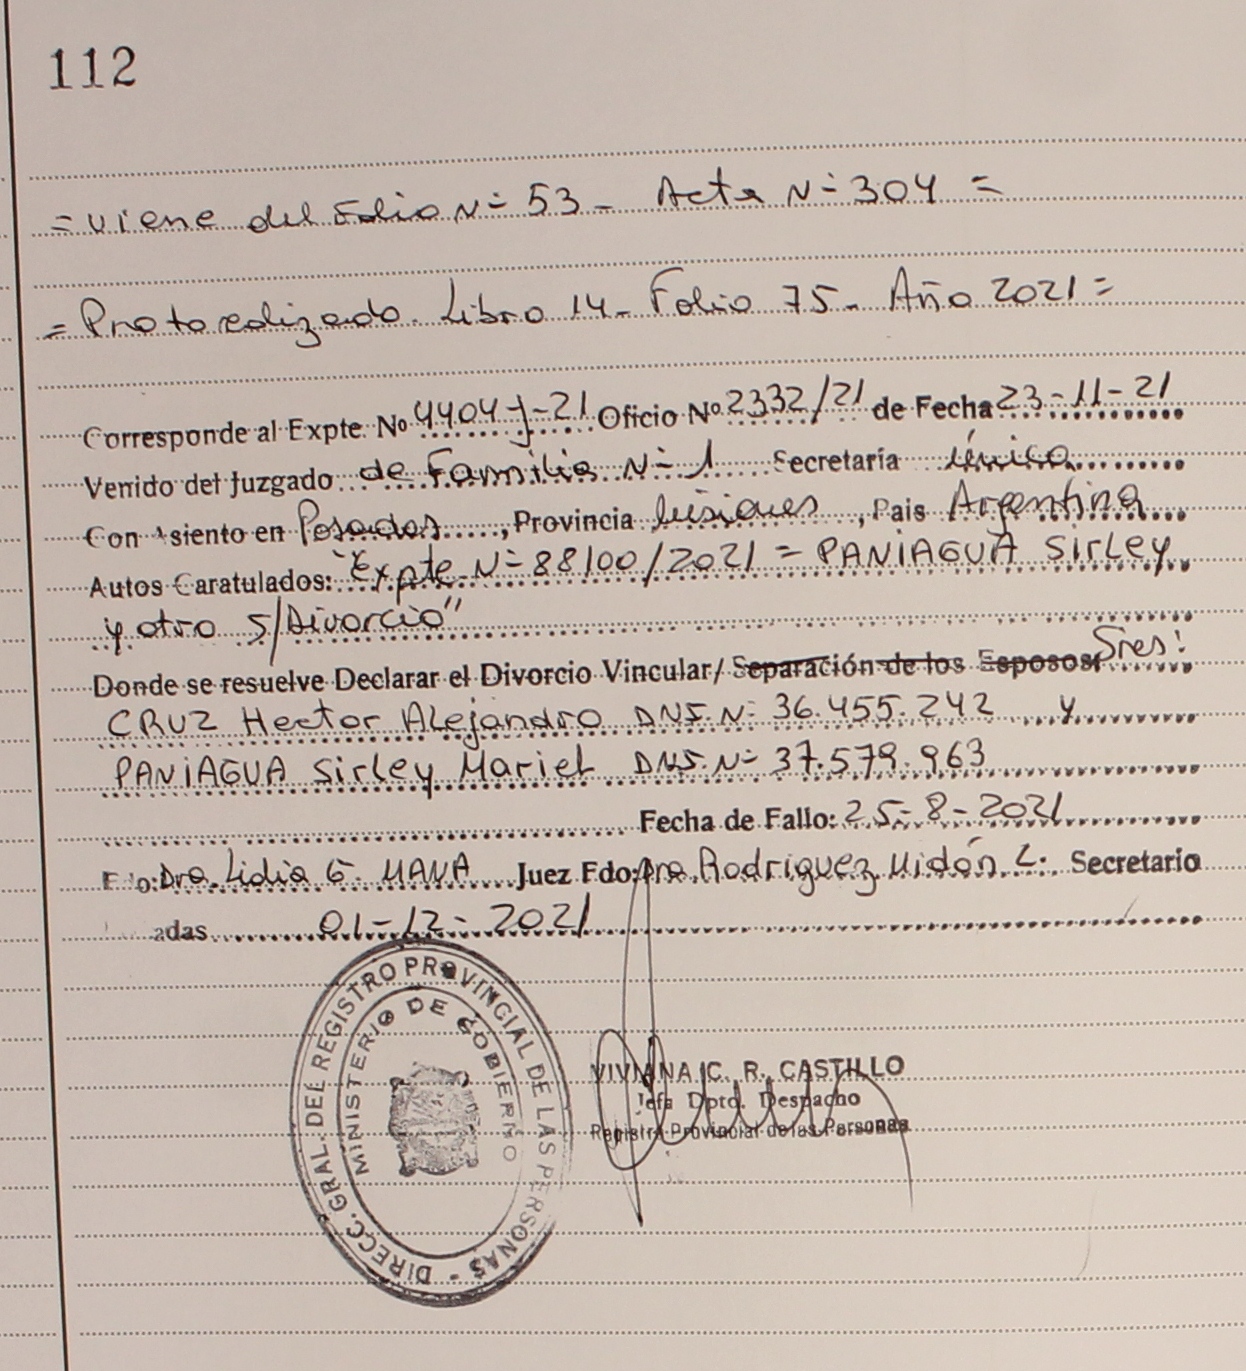 112
= Viene del Folio N= 53 - Acta N= 304 =
= Protocolizado. Libro 14 - Folio 75 - Año 2021 =
Corresponde al Expte. Nº 4404-J-21 Oficio Nº 2332/21 de Fecha 23-11-21
Venido del Juzgado de Familia N= 1 Secretaría única
Con Asiento en Posadas, Provincia Misiones, País Argentina
Autos Caratulados: "Expte. N= 88100/2021 = PANIAGUA Sirley
y otro S/Divorcio"
Donde se resuelve Declarar el Divorcio Vincular/ Separación de los Esposos Sres:
CRUZ Hector Alejandro DNI. N= 36.455.242 y
PANIAGUA Sirley Mariel DNI. N= 37.579.963
Fecha de Fallo: 25-8-2021
Fdo: Dra. Lidia G. Juez Fdo: Dra. Rodriguez Midón L. Secretario
adas 01-12-2021
DIRECC. GRAL. DEL REGISTRO PROVINCIAL DE LAS PERSONAS -
MINISTERIO DE GOBIERNO
VIVIANA C. R. CASTILLO
Jefa Dpto. Despacho
Registro Provincial de las Personas